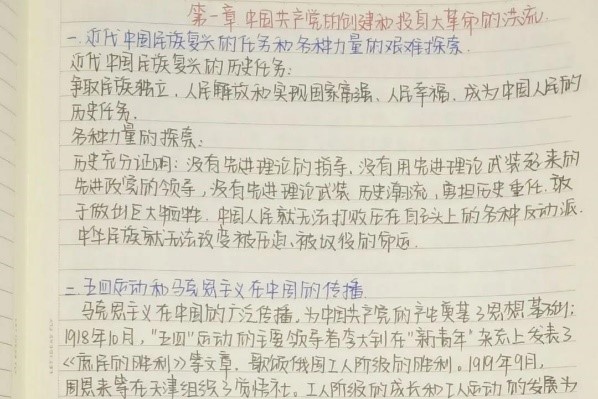 第一章 中国共产党的创建和投身大革命的洪流
一.近代中国民族复兴的任务和各种力量的艰难探索.
近代中国民族复兴的历史任务:
争取民族独立、人民解放和实现国家富强、人民幸福,成为中国人民的
历史任务.
各种力量的探索:
历史充分证明:没有先进理论的指导,没有用先进理论武装起来的
先进政党的领导,没有先进理论武装 历史潮流,勇担历史重任.敢
于做出巨大牺牲.中国人民就无法打败压在自己头上的各种反动派.
中华民族就无法改变被压迫、被奴役的命运.
二.五四运动和马克思主义在中国的传播.
马克思主义在中国的广泛传播,为中国共产党的产生奠基了思想基础;
1918年10月,"五四"运动的主要领导者李大钊在"新青年"杂志上发表了
《庶民的胜利》等文章,歌颂俄国工人阶级的胜利。1919年9月,
周恩来等在天津组织了觉悟社。工人阶级的成长和工人运动的发展为